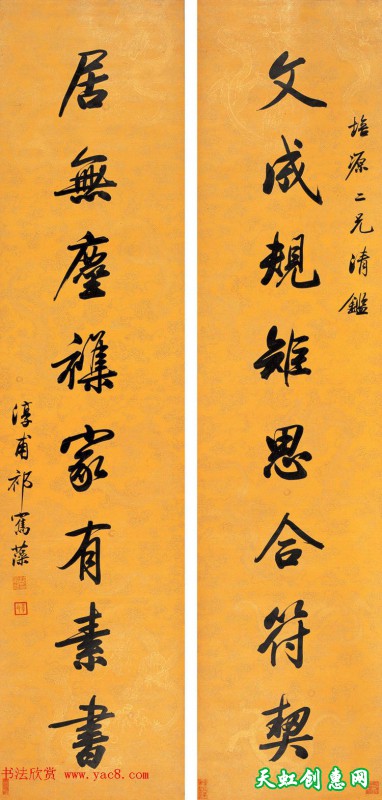 培源二兄清鑑
文成規矩思合符契
居無塵襍家有素書
淳甫祁寯藻
书法欣赏
www.yac8.com
天虹创惠网